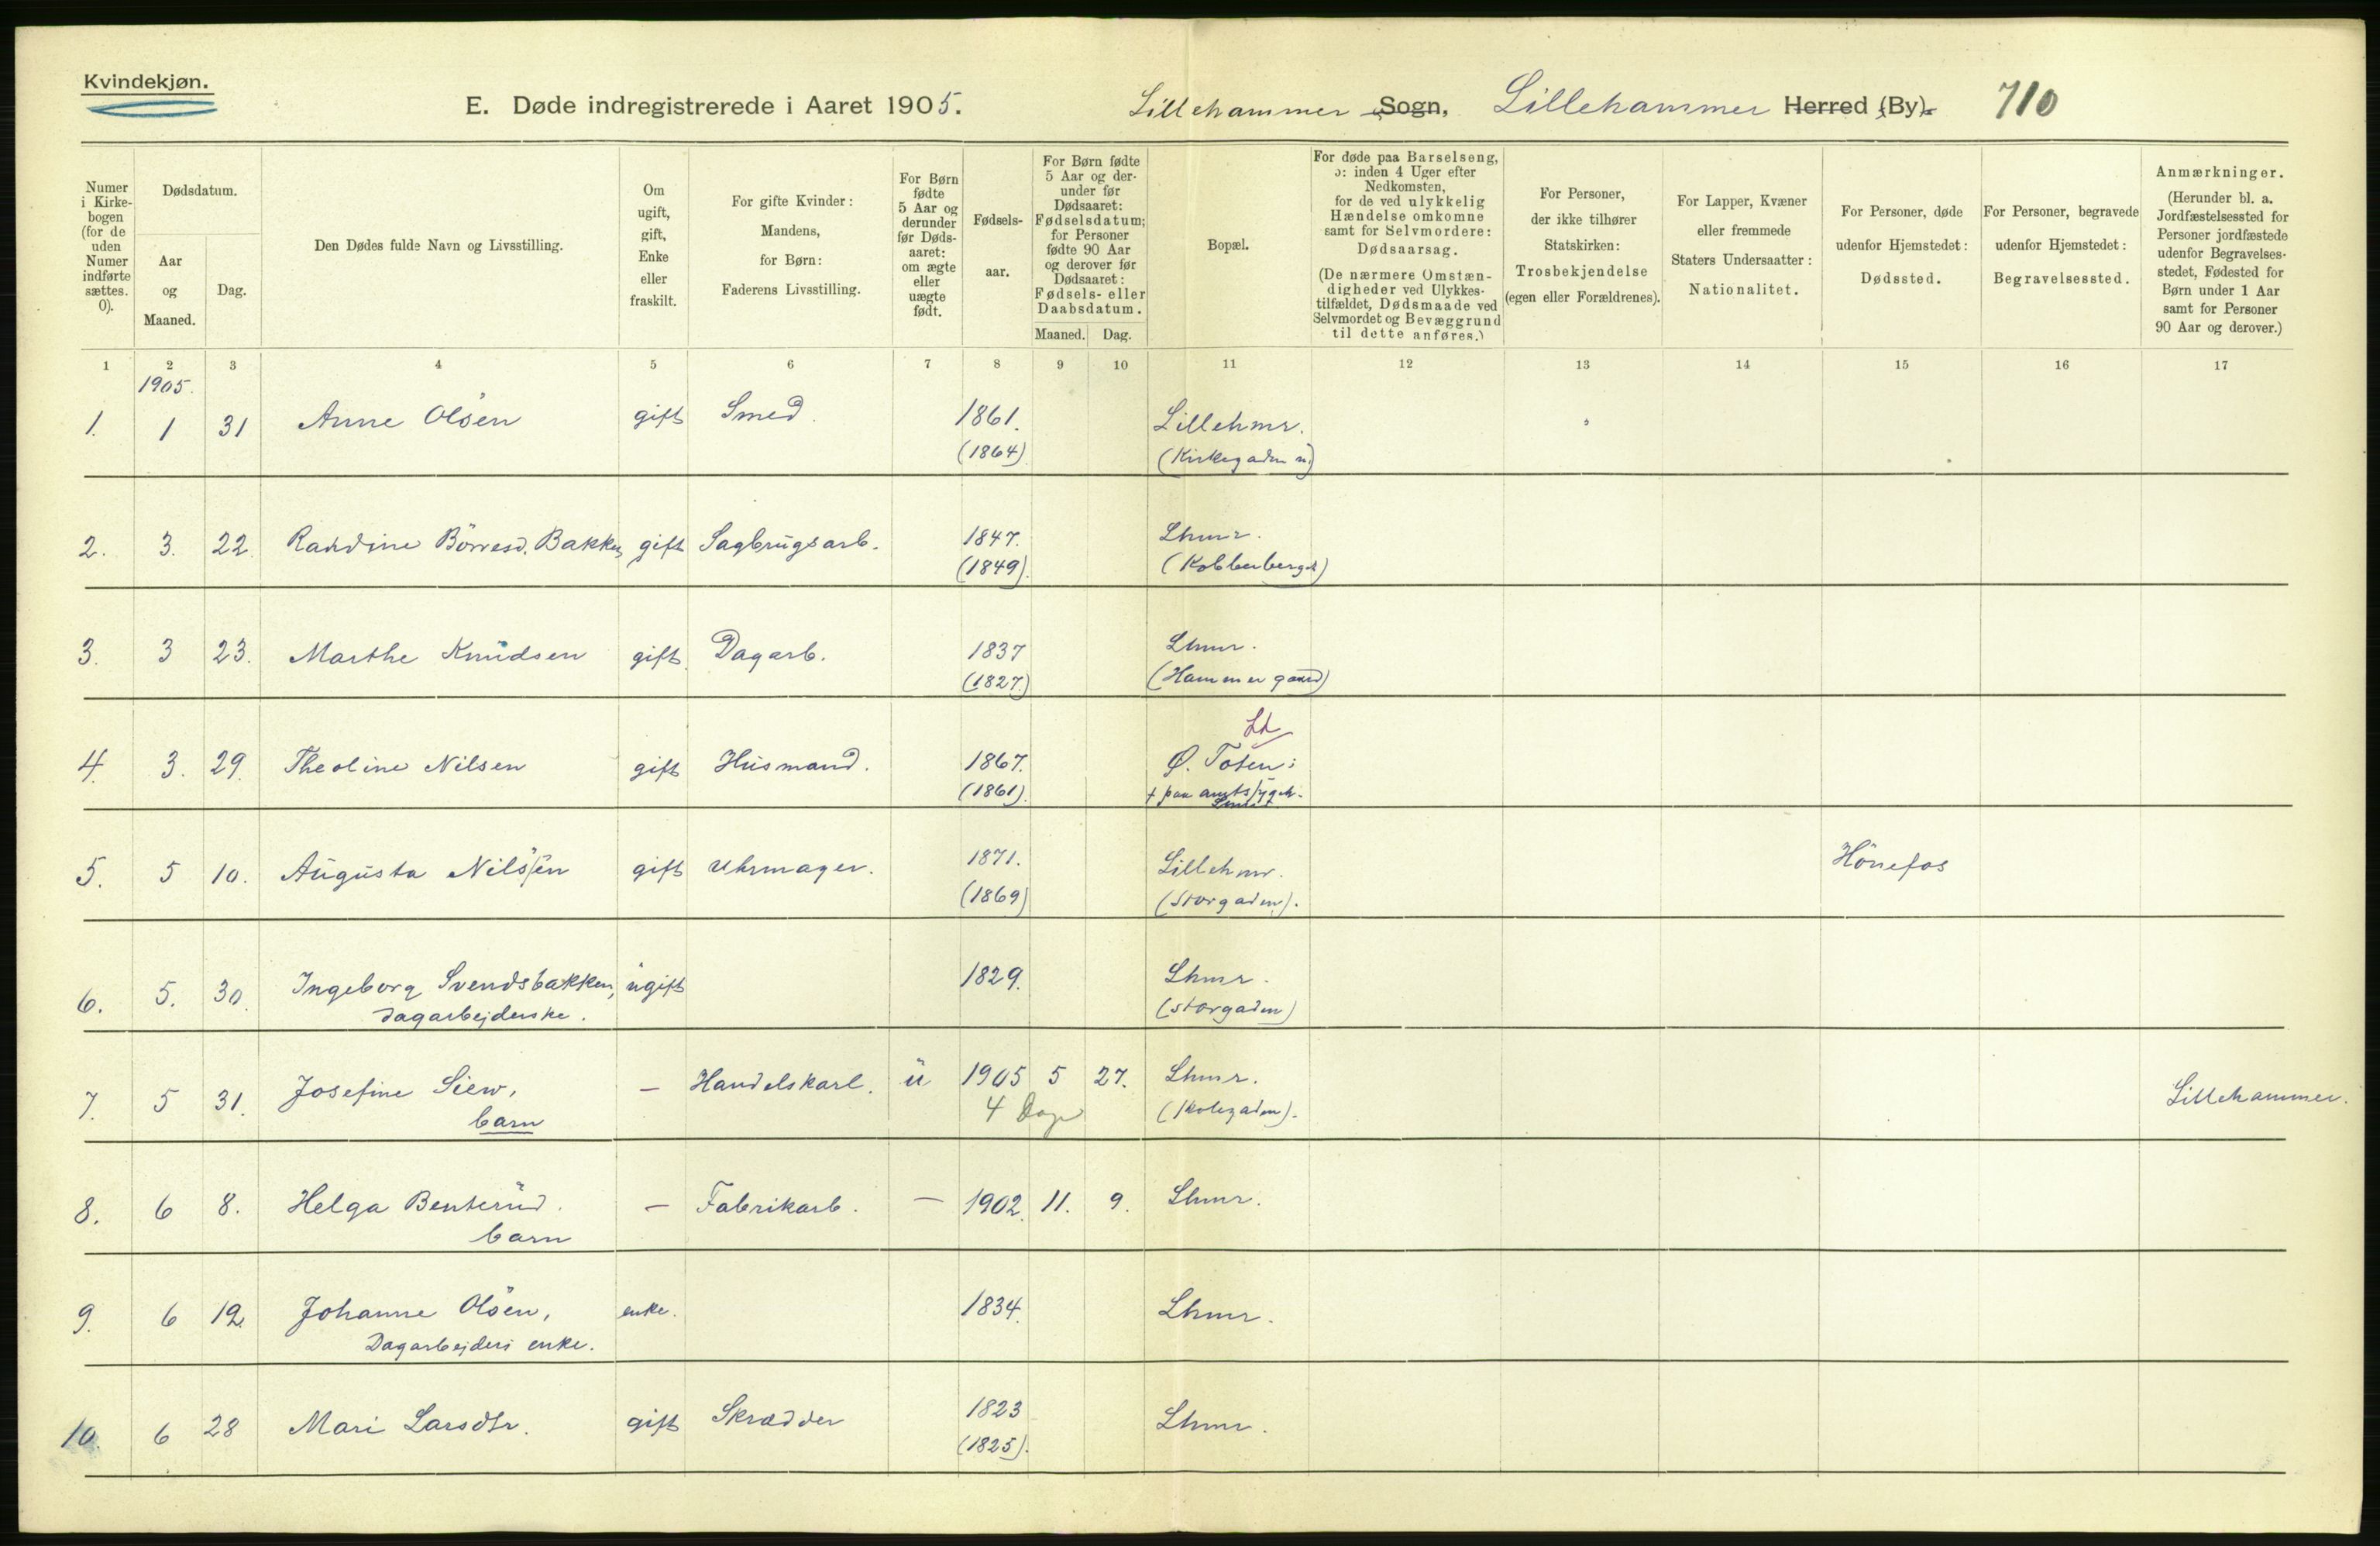 Kvindekjøn.
E. Døde indregistrerede i Aaret 1905. Lillehammer Sogn, Lillehammer Herred (By). 710
Numer i Kirkebogen (for de uden Numer indførte sættes. 0).
Dødsdatum.
Aar og Maaned.
Dag.
Den Dødes fulde Navn og Livsstilling.
Om ugift, gift, Enke eller fraskilt.
For gifte Kvinder: Mandens, for Børn: Faderens Livsstilling.
For Børn fødte 5 Aar og derunder før Dødsaaret: om ægte eller uægte født.
Fødselsaar.
For Børn fødte 5 Aar og derunder før Dødsaaret: Fødselsdatum; for Personer fødte 90 Aar og derover før Dødsaaret: Fødsels- eller Daabsdatum.
Maaned. Dag.
Bopæl.
For døde paa Barselseng, ɔ: inden 4 Uger efter Nedkomsten, for de ved ulykkelig Hændelse omkomne samt for Selvmordere: Dødsaarsag.
(De nærmere Omstændigheder ved Ulykkestilfældet, Dødsmaade ved Selvmordet og Bevæggrund til dette anføres.)
For Personer, der ikke tilhører Statskirken: Trosbekjendelse (egen eller Forældrenes).
For Lapper, Kvæner eller fremmede Staters Undersaatter: Nationalitet.
For Personer, døde udenfor Hjemstedet: Dødssted.
For Personer, begravede udenfor Hjemstedet: Begravelsessted.
Anmærkninger.
(Herunder bl. a. Jordfæstelsessted for Personer jordfæstede udenfor Begravelsesstedet, Fødested for Børn under 1 Aar samt for Personer 90 Aar og derover.)
1 2 3 4 5 6 7 8 9 10 11 12 13 14 15 16 17
1905.
1. 1 31 Anne Olsen gift Smed. 1861. Lillehmr.
(1864) (Kirkegaden n.)
2. 3. 22. Randine Börresd. Bakken gift Sagbrugsarb. 1847. Lhmr.
(1849). (Kobberberget)
3. 3 23. Marthe Knudsen gift. Dagarb. 1837 Lhmr.
(1827.) (Hammergaard)
Lh
4. 3. 29. Theoline Nilsen gift Husmand. 1867. Ø. Toten:
(1861). † paa amtssygeh.
5. 5 10. Augusta Nilssen gift Uhrmager. 1871. Lillehmr. Hönefos
(1869) (Storgaden).
6. 5. 30. Ingeborg Svendsbakken, ugift 1829. Lhmr.
dagarbejderske. (Storgaden)
7. 5 31. Josefine Siew, – Handelskarl. u 1905 5 27. Lhmr. Lillehammer.
barn 4 Dage (Skolegaden).
8. 6 8. Helga Benterud. – Fabrikarb. – 1902. 11. 9. Lhmr.
barn
9. 6 12. Johanne Olsen, enke. 1834. Lhmr.
Dagarbejders enke.
10. 6 28 Mari Larsdtr. gift Skrædder 1823 Lhmr.
(1825).